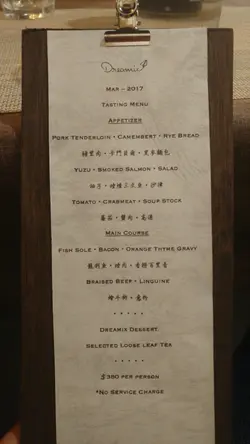 Dreamix
Mar – 2017
Tasting Menu
Appetizer
Pork Tenderloin • Camembert • Rye Bread
豬里肉•卡門貝爾•黑麥麵包
Yuzu • Smoked Salmon • Salad
柚子•煙燻三文魚•沙律
Tomato • Crabmeat • Soup Stock
蕃茄•蟹肉•高湯
Main Course
Fish Sole • Bacon • Orange Thyme Gravy
龍利魚•煙肉•香橙百里香
Braised Beef • Linguine
燴牛肋•意粉
• • • • •
Dreamix Dessert
Selected Loose leaf Tea
• • • • •
$380 per person
*No Service Charge